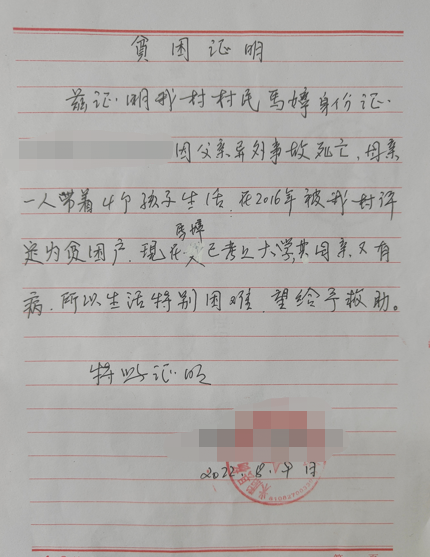 贫困证明
兹证明我村村民马婷身份证
因父亲异外事故死亡,母亲
一人带着4个孩子生活,在2016年被我村评
马婷
定为贫困户,现在人已考上大学,其母亲又有
病,所以生活特别困难,望给予救助。
特此证明
2022.8.